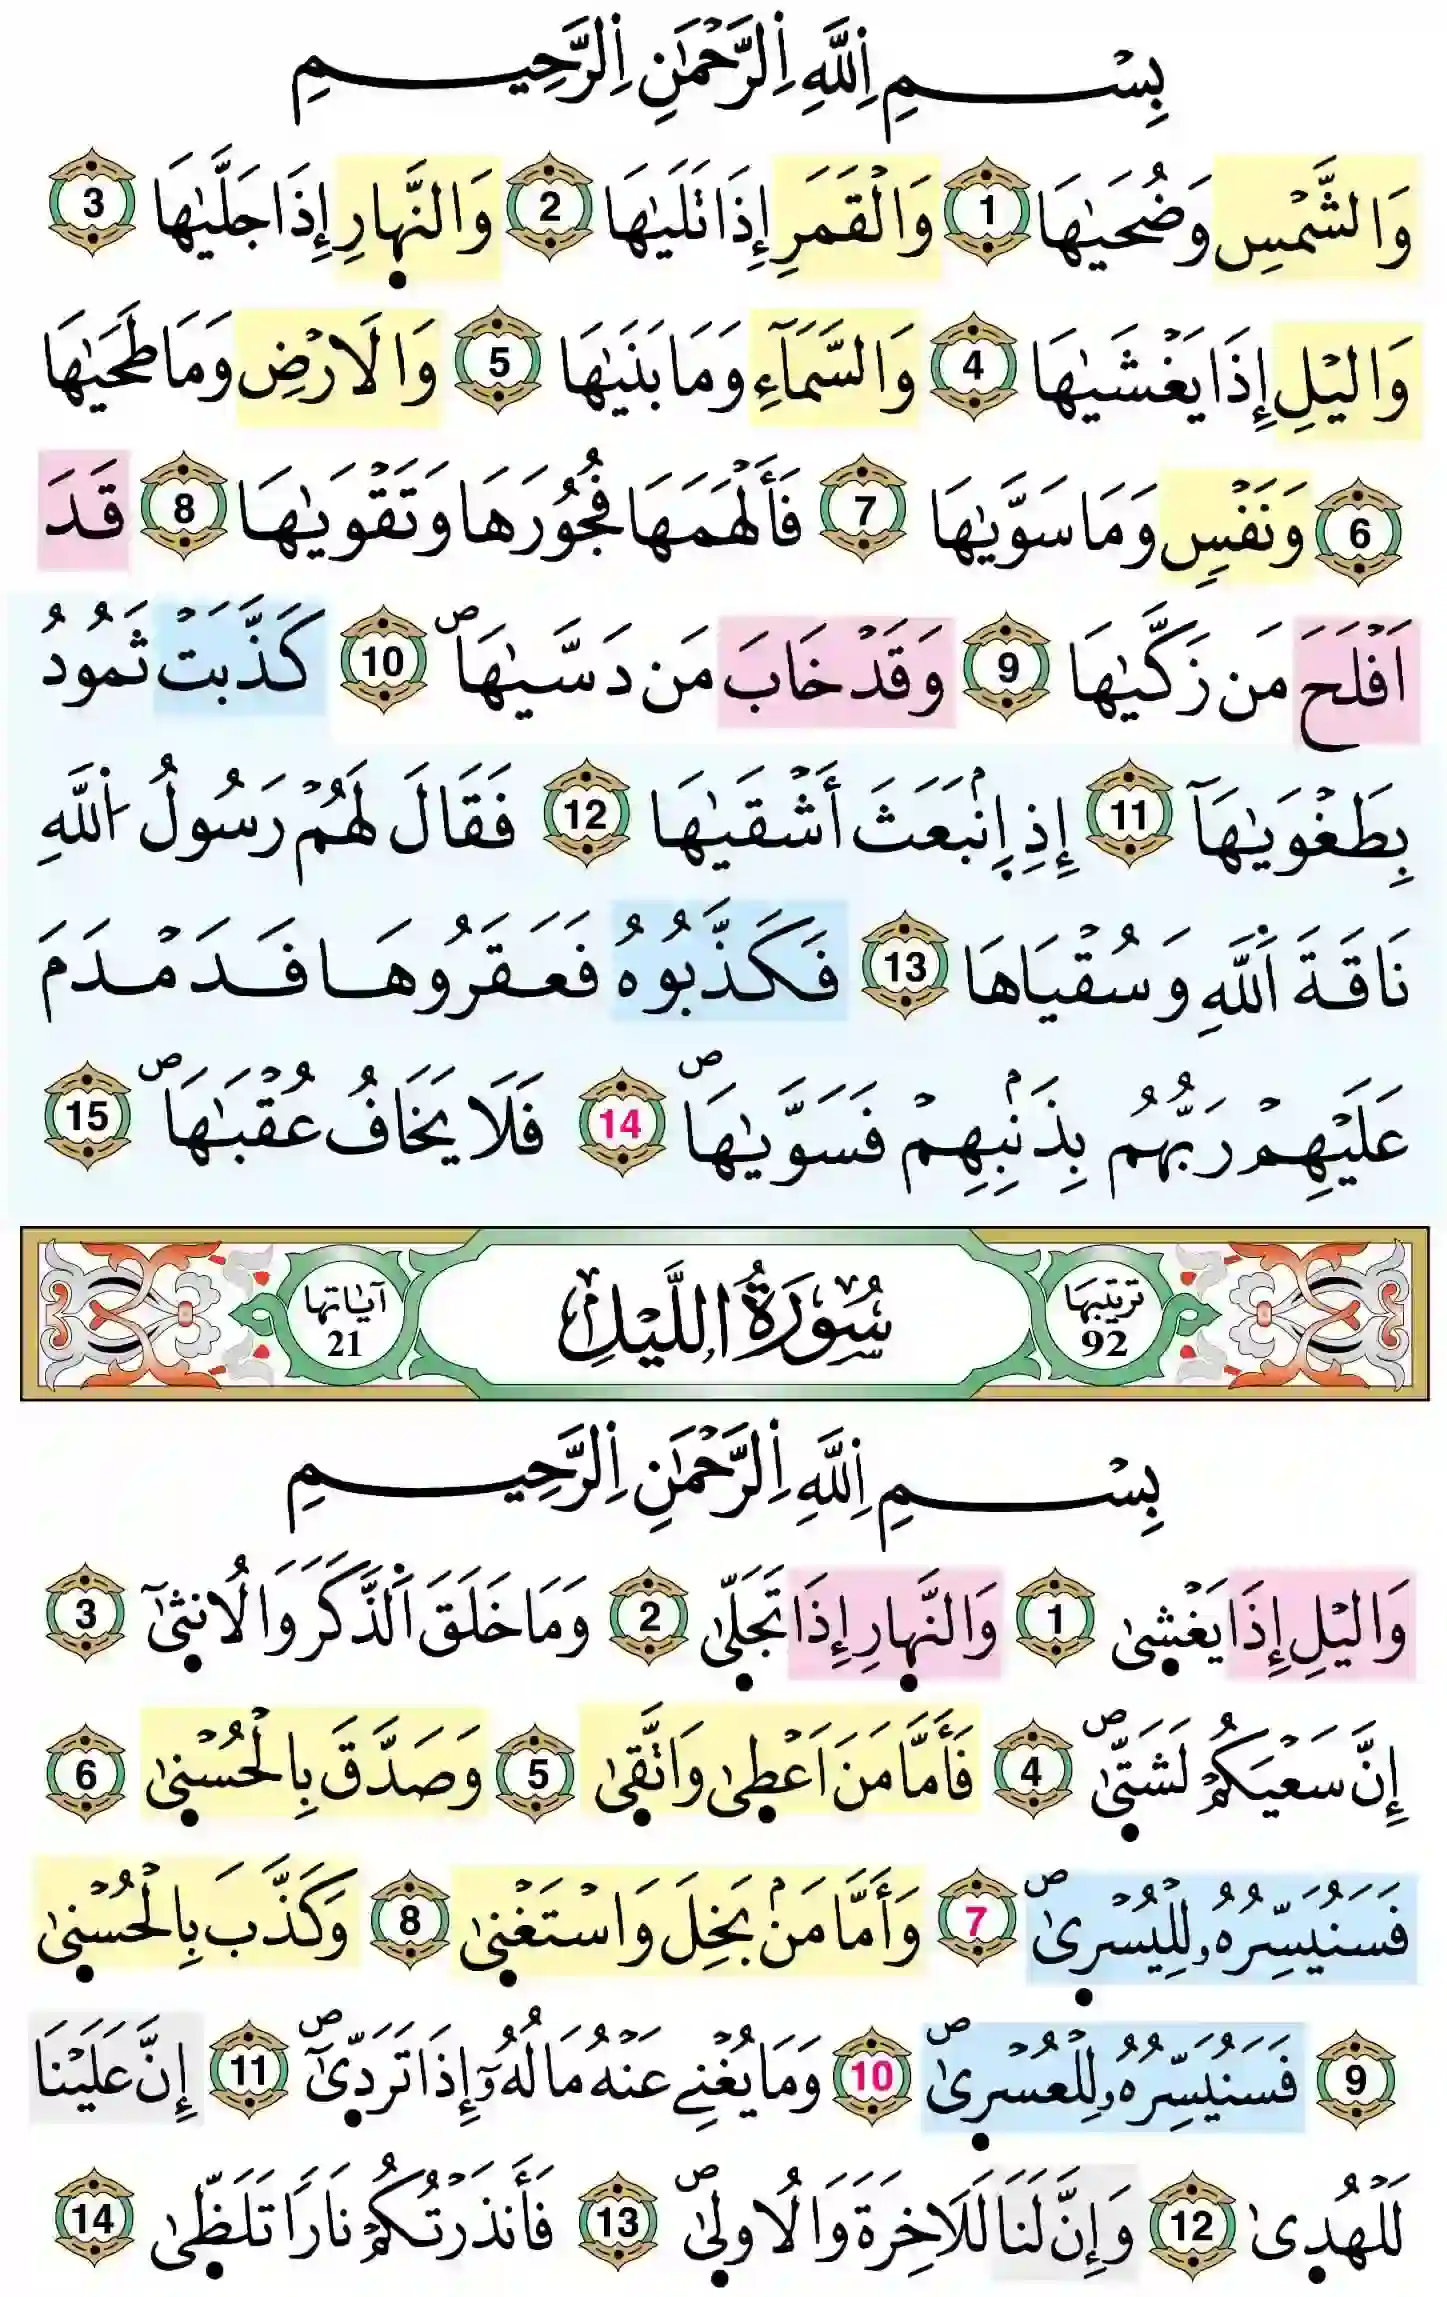 بِسْمِ اِللَّهِ اِلرَّحْمَٰنِ اِلرَّحِيمِ
وَالشَّمْسِ وَضُحَيٰهَا 1 وَالْقَمَرِ إِذَا تَلَيٰهَا 2 وَالنَّهِارِ إِذَا جَلَّيٰهَا 3
وَاليْلِ إِذَا يَغْشَيٰهَا 4 وَالسَّمَآءِ وَمَا بَنَيٰهَا 5 وَالَارْضِ وَمَا طَحَيٰهَا
6 وَنَفْسٖ وَمَا سَوَّيٰهَا 7 فَأَلْهَمَهَا فُجُورَهَا وَتَقْوَيٰهَا 8 قَدَ
اَفْلَحَ مَن زَكَّيٰهَا 9 وَقَدْ خَابَ مَن دَسَّيٰهَا ص 10 كَذَّبَتْ ثَمُودُ
بِطَغْوَيٰهَآ 11 إِذِ اِنۢبَعَثَ أَشْقَيٰهَا 12 فَقَالَ لَهُمْ رَسُولُ اُللَّهِ
نَاقَةَ اَللَّهِ وَسُقْيَاهَا 13 فَكَذَّبُوهُ فَعَقَرُوهَا فَدَمْدَمَ
عَلَيْهِمْ رَبُّهُم بِذَنۢبِهِمْ فَسَوَّيٰهَا ص 14 فَلَا يَخَافُ عُقْبَٰهَا ص 15
ترتيبها 92 سُورَةُ اللَّيْلِ آياتها 21
بِسْمِ اِللَّهِ اِلرَّحْمَٰنِ اِلرَّحِيمِ
وَاليْلِ إِذَا يَغْشىٰ 1 وَالنَّهِارِ إِذَا تَجَلّىٰ 2 وَمَا خَلَقَ اَلذَّكَرَ وَالُانثىٰٓ 3
إِنَّ سَعْيَكُمْ لَشَتّىٰ ص 4 فَأَمَّا مَنَ اَعْطىٰ وَاتَّقىٰ 5 وَصَدَّقَ بِالْحُسْنىٰ 6
فَسَنُيَسِّرُهُۥ لِلْيُسْرىٰ ص 7 وَأَمَّا مَنۢ بَخِلَ وَاسْتَغْنىٰ 8 وَكَذَّبَ بِالْحُسْنىٰ
9 فَسَنُيَسِّرُهُۥ لِلْعُسْرىٰ ص 10 وَمَا يُغْنِے عَنْهُ مَالُهُۥٓ إِذَا تَرَدّىٰٓ ص 11 إِنَّ عَلَيْنَا
لَلْهُدىٰ 12 وَإِنَّ لَنَا لَلَاخِرَةَ وَالُاولىٰ ص 13 فَأَنذَرْتُكُمْ نَارًا تَلَظّىٰ 14